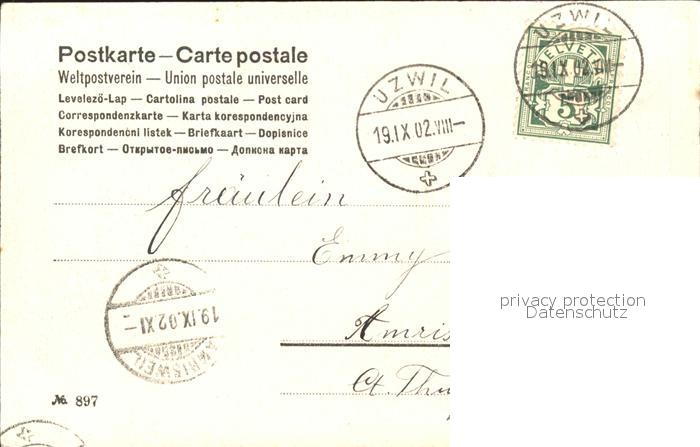 Postkarte — Carte postale
Weltpostverein — Union postale universelle
Levelező-Lap — Cartolina postale — Post card
Correspondenzkarte — Karta korespondencyjna
Korespondenční listek — Briefkaart — Dopisnice
Brefkort — Открытое-письмо — Дописна карта
UZWIL
19.IX.02.VIII—
UZWIL
19.IX.02.VIII
HELVETIA
5
fräulein
Emmy
privacy protection
Datenschutz
AMRISWEIL
19.IX.02.XI—
Amris
Ct. Thu
№ 897